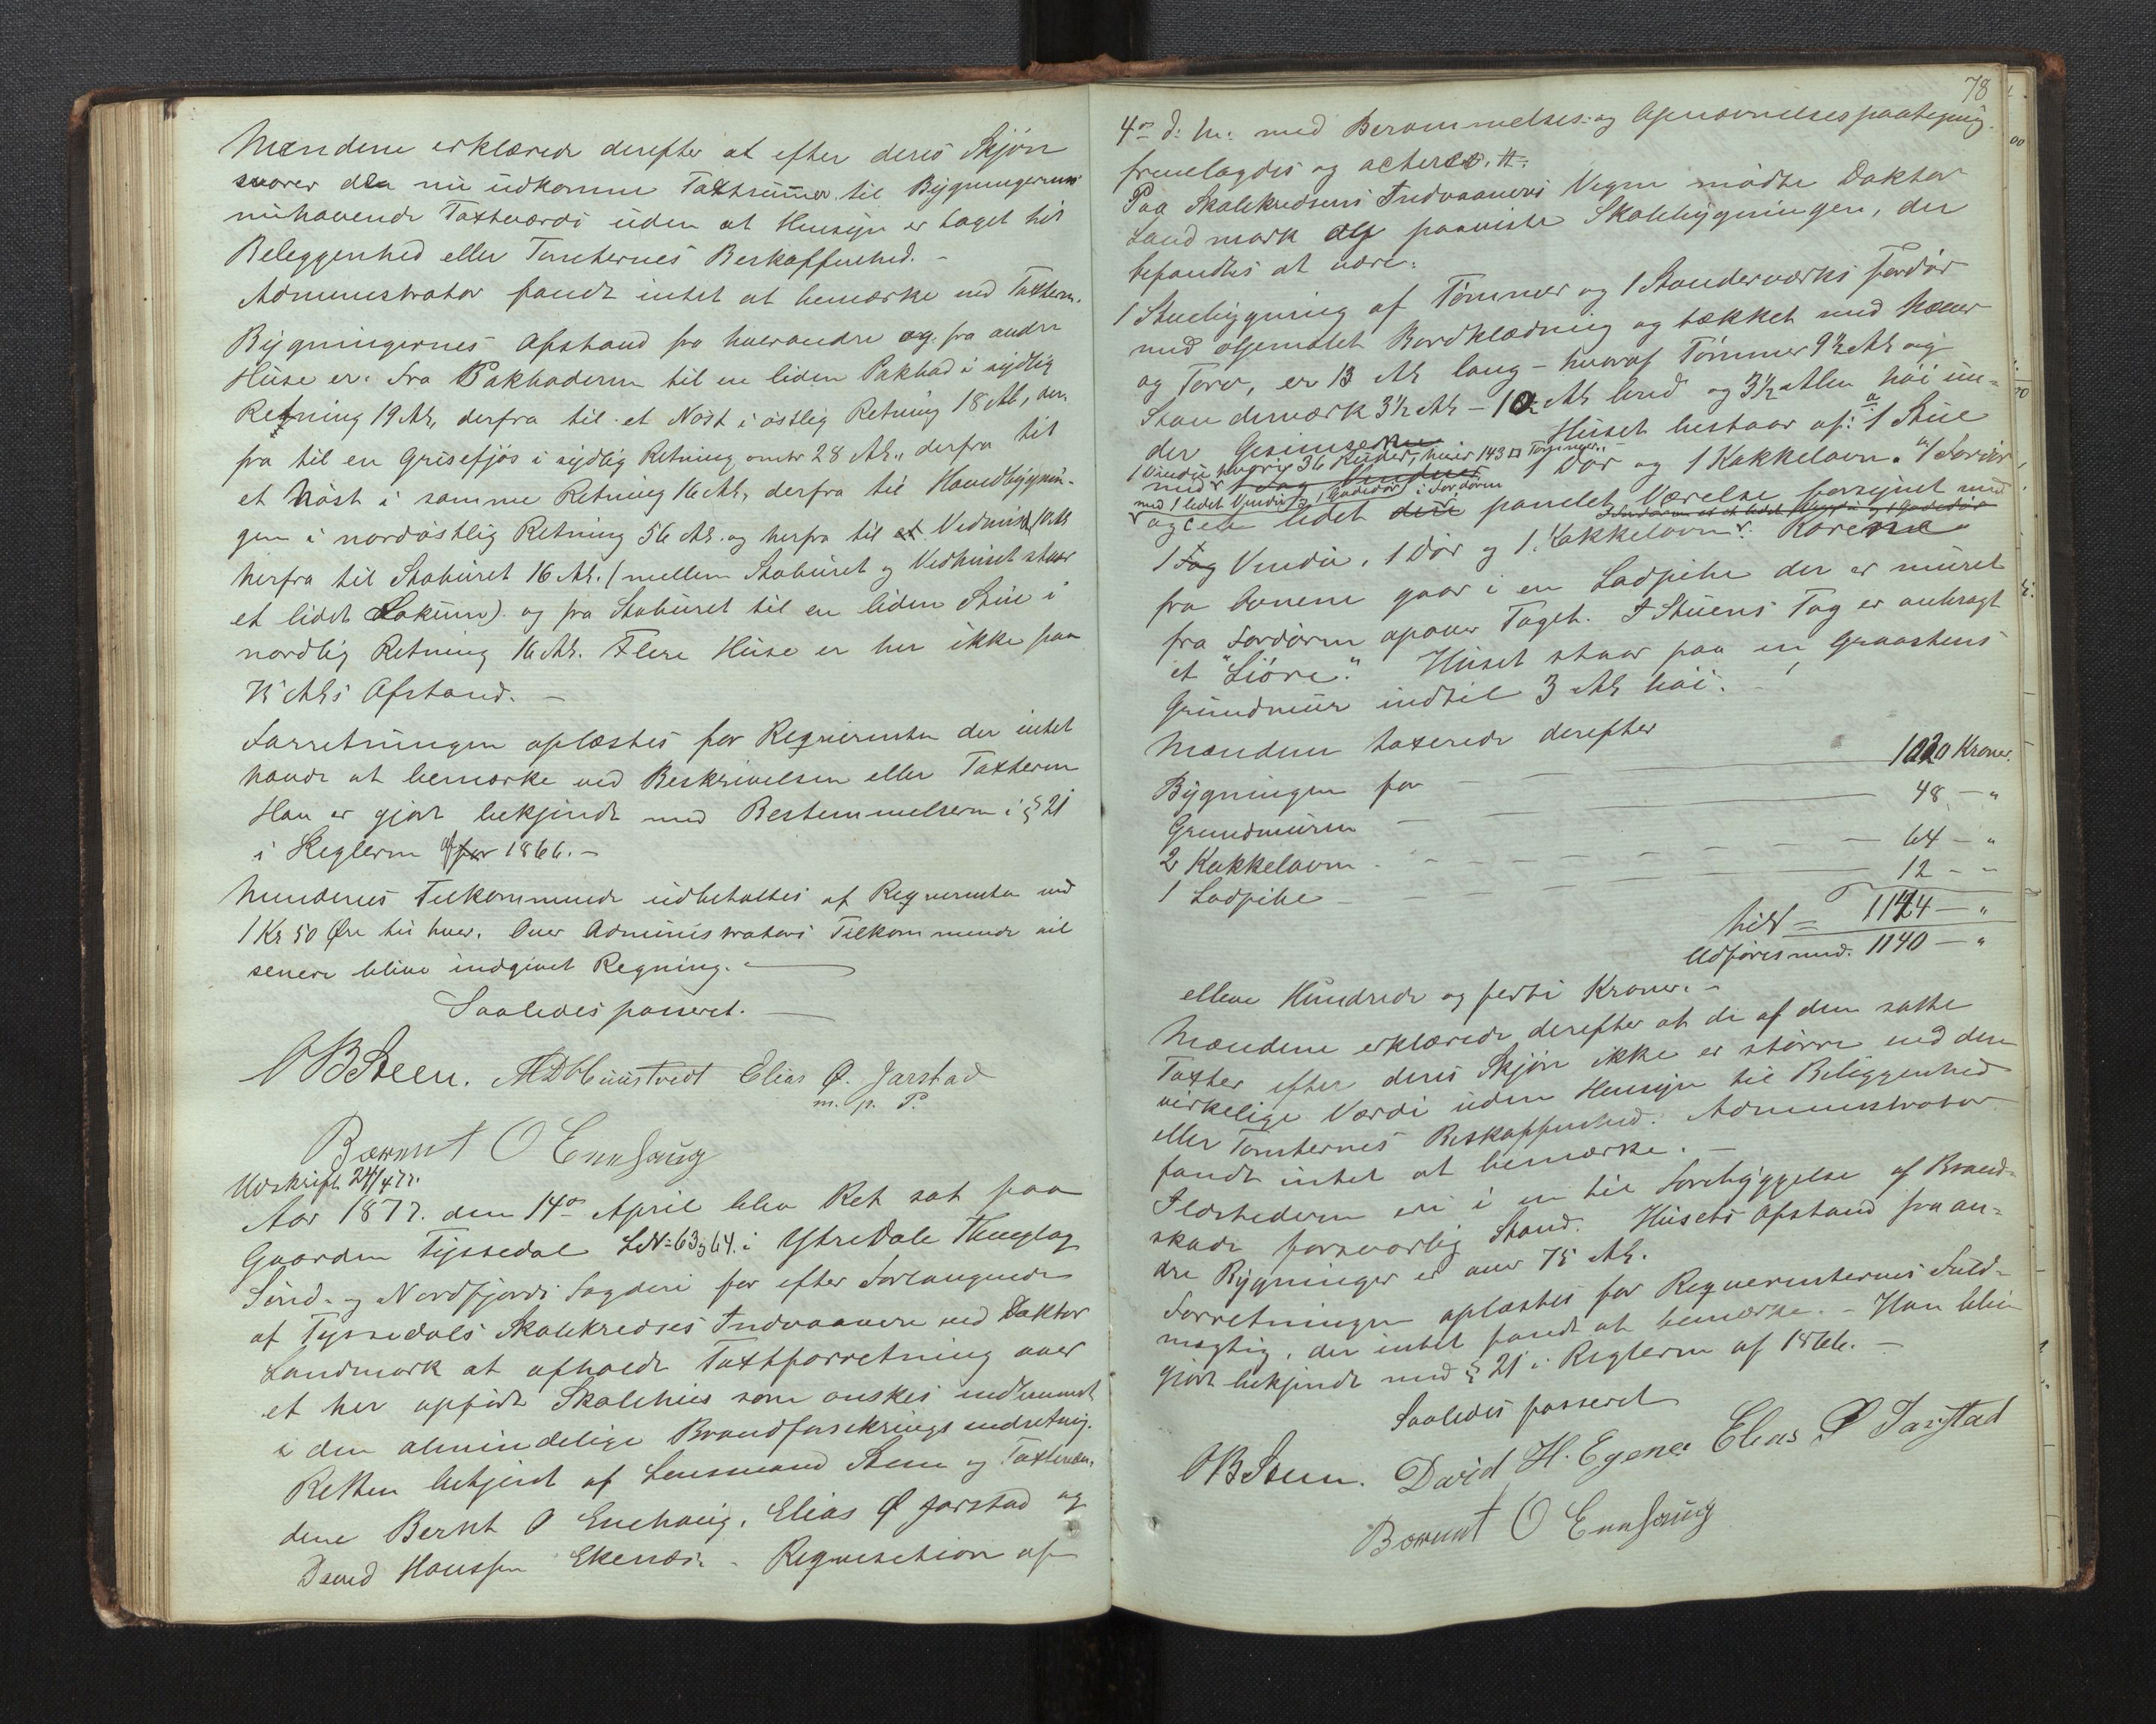 Mændene erklærede derefter at efter deres Skjøn
svarer den nu udkomne Taxtsummer til Bygningernes
nuhavende Taxtværdi uden at Hensyn er taget til
Beleggenhed eller Tomternes Beskaffenhed. –
Administrator fandt intet at bemærke ved Taxten.
Bygningernes Afstand fra hverandre og fra andre
Huse er: Fra Pakboderne til en liden Pakbod i sydlig
Retning 19 Al., derfra til et Nøst i østlig Retning 18 Al, der-
fra til en Grisefjøs i sydlig Retning omtr 28 Al., derfra til
et Nøst i samme Retning 16 Al., derfra til Hovedbygnin-
gen i nordøstlig Retning 56 Al. og herfra til et Vedhus 10 Al
herfra til Stabúret 16 Al. (mellem Stabúret og Vedhúset staar
et lidet Lokum) og fra Stabúret til en liden Stue i
nordlig Retning 16 Al. Flere Húse er her ikke paa
75 Al's Afstand. –
Forretningen oplæstes for Reqvirenten der intet
havde at bemærke ved Beskrivelsen eller Taxterne
Han er gjort bekjendt med Bestemmelserne i § 21
i Reglerne af 1866. –
Mændenes Tilkommende udbetaltes af Reqvirenten med
1 Kr 50 Øre til hver. Over Administrators Tilkommende vil
senere blive indgivet Regning. –
Saaledes passeret. –
OBSteen. Elias Ø. Jarstad
m. p. P.
Bærnt O Ennhaug
Udskrift 24/4 77.
Aar 1877. den 14de April blev Ret sat paa
Gaarden Tyssedal LN: 63 & 64. i Ytre Dale Thinglag
Sønd- og Nordfjords Fogderi for efter Forlangende
af Tyssedals Skolekredses Indvaanere ved Doktor
Landmark at afholde Taxtforretning over
et her opført Skolehús som ønskes indlemmet
i den almindelige Brandforsikringsindretnig.
Retten betjent af Lensmand Steen og Taxtmæn-
dene Bernt O Enehaúg, Elias Ø Jarstad og
David Hanssen Ekenæs. – Reqvisition af
78
4de d: M: med Berammelses- og Opnævnelsespaategnig.
fremlagdes og acteres. #.
Paa Skolekredsens Indvaaneres Vegne mødte Doktor
Landmark og paaviste Skolebygningen, der
befandtes at være:
1 Stuebygning af Tømmer og 1 Standerværks Fordør
med oljemalet Bordklædning og tækket med Næver
og Torv, er 13 Al lang – hvoraf Tømmer 9½ Al og
Standerværk 3½ Al – 10 Al bred og 3½ Alen høi ún-
der Gesimserne Húset bestaar af: a 1 Stúe
1 Vindú hvoris 36 Rúder, hver 143 □ Tommer.
med 1 Fag Vinduer 1 Dør og 1 Kakkelovn. b/ 1 Fordør
med 1 lidet Vindú og 1 Gadedør i Fordøren
og c et lidet der panelet Værelse forsynet med
1 Fag Vindú, 1 Dør og 1 Kakkelovn. Rørene
fra Ovnene gaar i en Ladpibe der er múret
fra Fordøren opover Taget. I Stúens Tag er anbragt
et "Liøre." Húset staar paa en Graastens
Grúndmúr indtil 3 Al høi. –
Mændene taxerede derefter
Bygningen for 1020 Kroner.
Grundmúren 48 – "
2 Kakkelovne 64 – "
1 Ladpibe 12 – "
tils = 1144 – "
Udføres med. 1140 – "
elleve Hundrede og førti Kroner. –
Mændene erklærede derefter at de af dem satte
Taxter efter deres Skjøn ikke er større end den
virkelige Værdi uden Hensyn til Beliggenhed
eller Tomternes Beskaffenhed. Administrator
fandt intet at bemærke. –
Ildstederne ere i en til Forebyggelse af Brand-
skade forsvarlig Stand. Húsets Afstand fra an-
dre Bygninger er over 75 Al.
Forretningen oplæstes for Reqvirenternes Fuld-
mægtig, der intet fandt at bemærke. – Han blev
gjort bekjendt med § 21 i Reglerne af 1866. –
Saaledes passeret
OBSteen. David H. Egenes Elias Ø Jarstad
Bærnt O Ennhaug